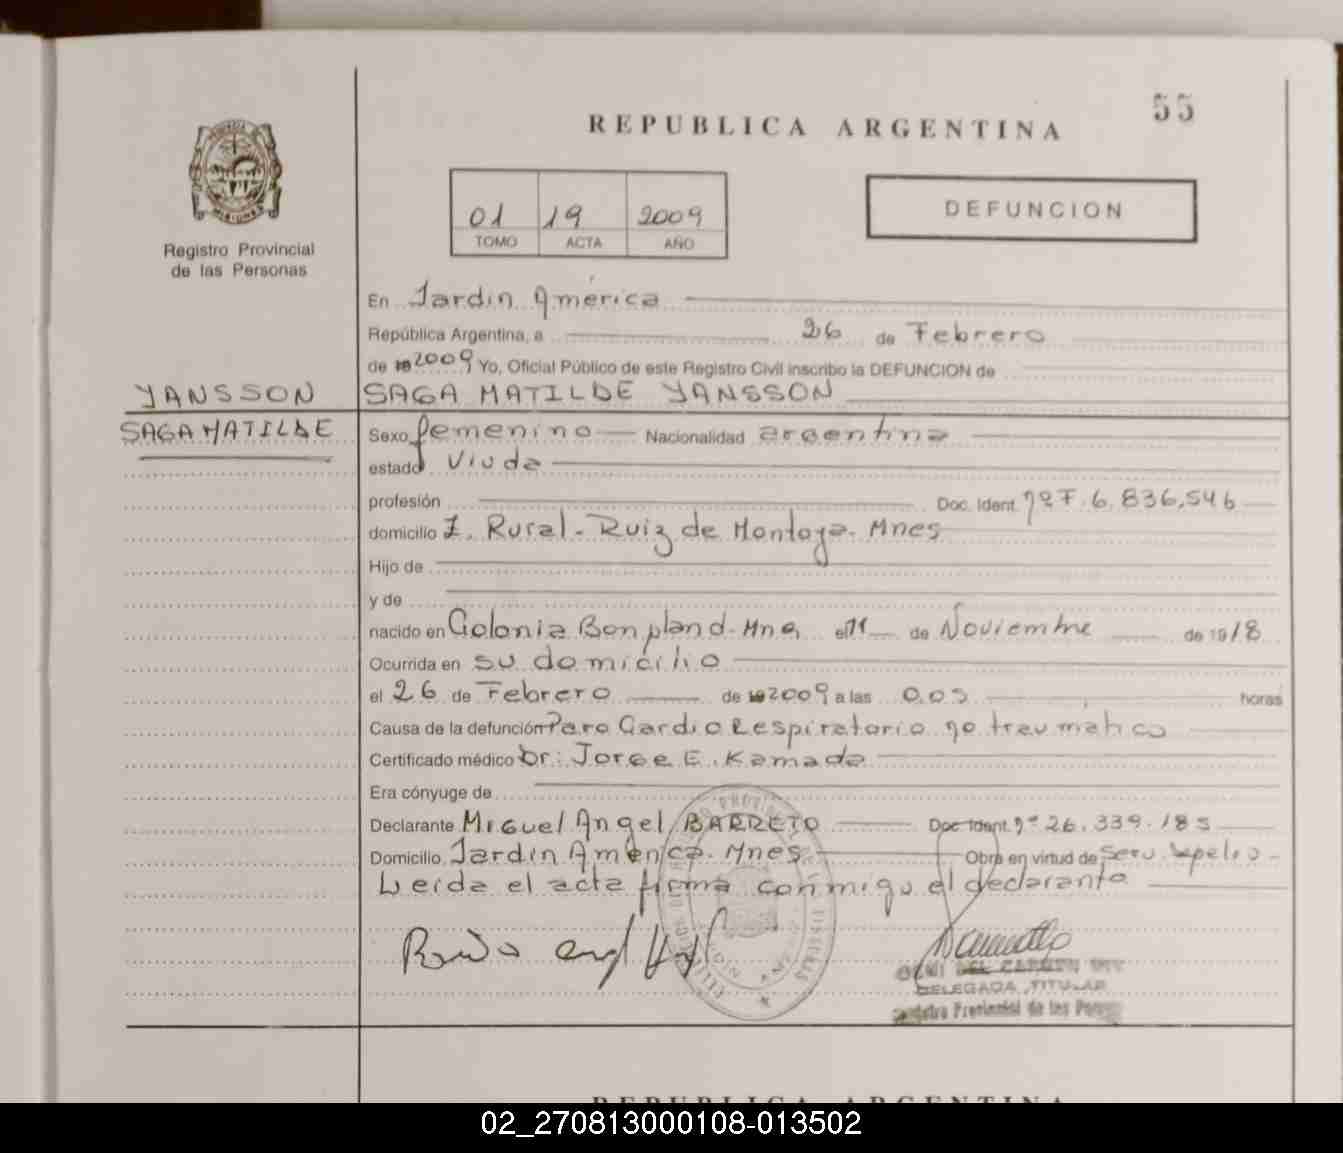 55
REPUBLICA ARGENTINA
01 19 2009
TOMO ACTA AÑO
DEFUNCION
Registro Provincial
de las Personas
En Jardin América
República Argentina, a 26 de Febrero
de 19 2009 Yo, Oficial Público de este Registro Civil inscribo la DEFUNCION de
YANSSON SAGA MATILDE YANSSON
SAGA MATILDE Sexo femenino Nacionalidad argentina
estado Viuda
profesión Doc. Ident. nº F. 6.836.546
domicilio Z. Rural - Ruiz de Montoya - Mnes
Hijo de
y de
nacido en Colonia Bonpland - Mnes el 11 de Noviembre de 1918
Ocurrida en su domicilio
el 26 de Febrero de 19 2009 a las 0.05 horas
Causa de la defunción Paro Cardio Respiratorio no traumatico
Certificado médico Dr: Jorge E. Kamada
Era cónyuge de
Declarante Miguel Angel BARRETO Doc. Ident. nº 26.339.185
Domicilio Jardin América - Mnes Obra en virtud de Serv. Sepelio -
Leida el acta firma conmigo el declarante
DEL CARMEN
DELEGADA TITULAR
Registro Provincial de las Personas
REPUBLICA ARGENTINA
02_270813000108-013502